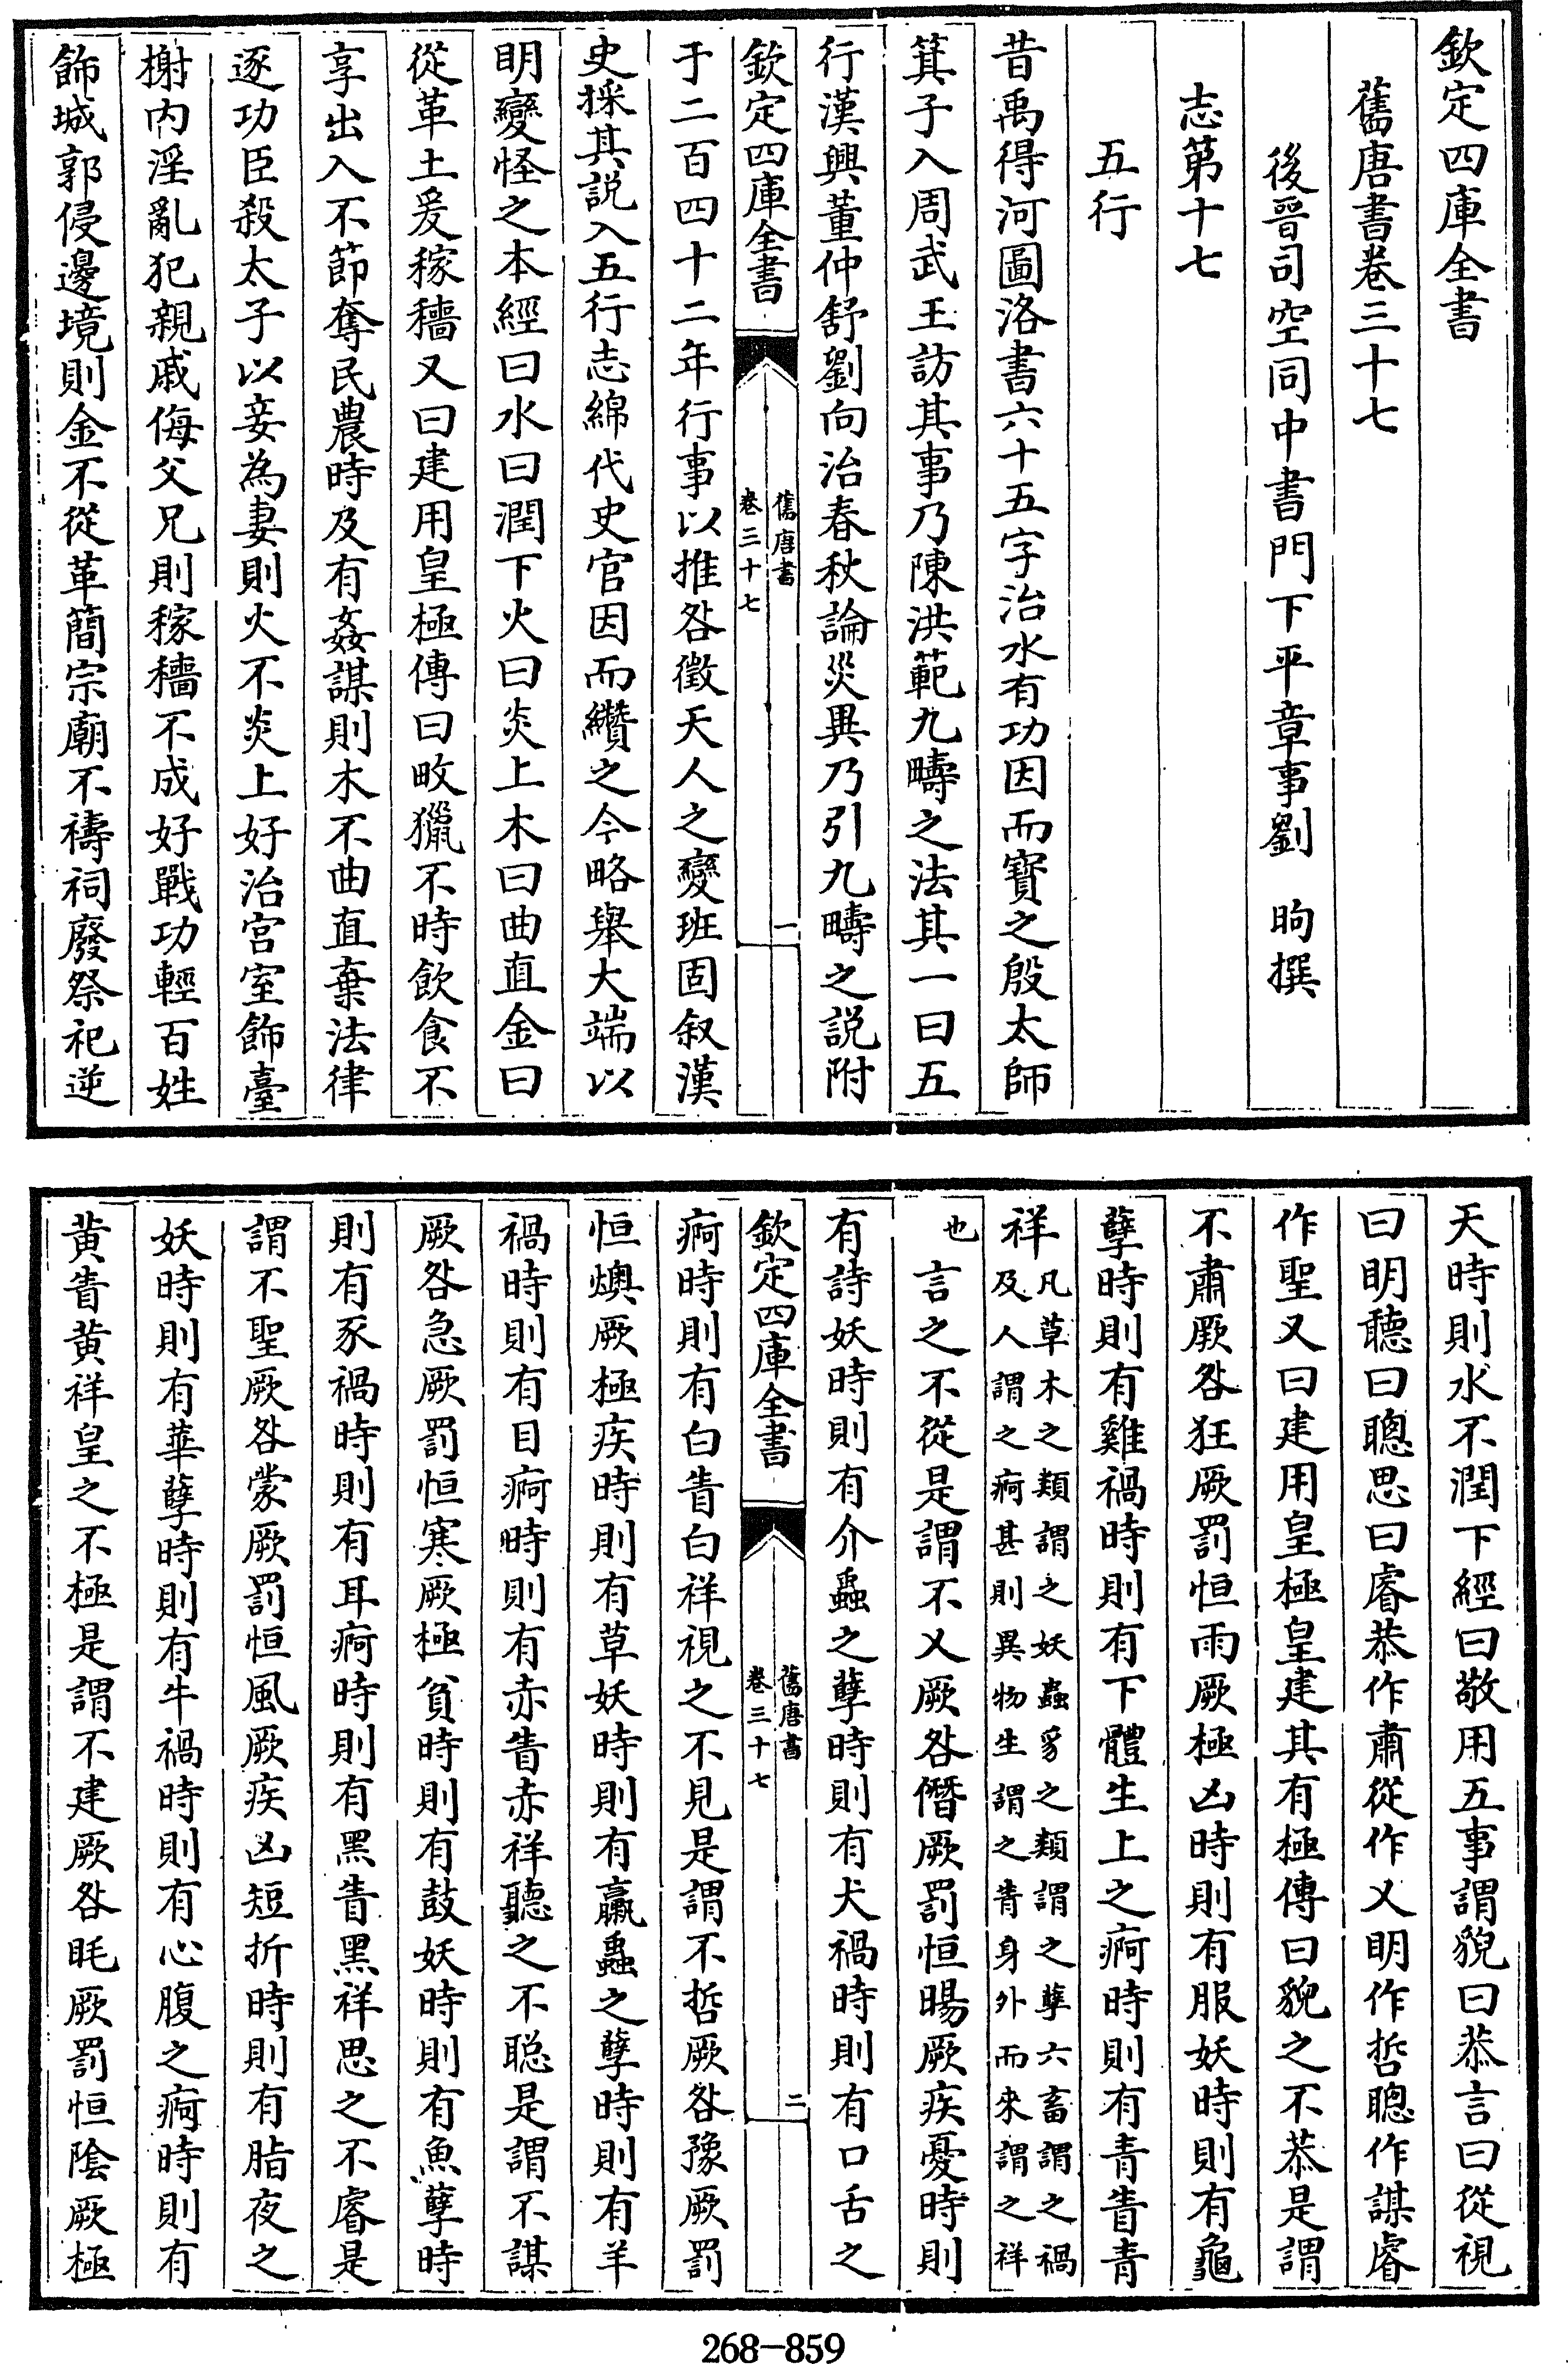 欽定四庫全書
舊唐書卷三十七
後晉司空同中書門下平章事劉 昫撰
志第十七
五行
昔禹得河圖洛書六十五字治水有功因而寳之殷太師
箕子入周武王訪其事乃陳洪範九疇之法其一曰五
行漢興董仲舒劉向治春秋論災異乃引九疇之説附
欽定四庫全書
舊唐書
卷三十七
一
于二百四十二年行事以推咎徵天人之變班固叙漢
史採其説入五行志綿代史官因而纘之今略舉大端以
明變怪之本經曰水曰潤下火曰炎上木曰曲直金曰
從革土爰稼穡又曰建用皇極傳曰畋獵不時飲食不
享出入不節奪民農時及有姦謀則木不曲直棄法律
逐功臣殺太子以妾為妻則火不炎上好治宫室飾臺
榭内淫亂犯親戚侮父兄則稼穡不成好戰功輕百姓
飾城郭侵邊境則金不從革簡宗廟不禱祠廢祭祀逆
天時則水不潤下經曰敬用五事謂貌曰恭言曰從視
曰明聽曰聰思曰睿恭作肅從作乂明作哲聰作謀睿
作聖又曰建用皇極皇建其有極傳曰貌之不恭是謂
不肅厥咎狂厥罰恒雨厥極凶時則有服妖時則有龜
孽時則有雞禍時則有下體生上之痾時則有青眚青
祥
凡草木之類謂之妖蟲豸之類謂之孽六畜謂之禍
及人謂之痾甚則異物生謂之眚身外而來謂之祥
也
言之不從是謂不乂厥咎僭厥罰恒暘厥疾憂時則
有詩妖時則有介蟲之孽時則有犬禍時則有口舌之
欽定四庫全書
舊唐書
卷三十七
二
痾時則有白眚白祥視之不見是謂不哲厥咎豫厥罰
恒燠厥極疾時則有草妖時則有臝蟲之孽時則有羊
禍時則有目痾時則有赤眚赤祥聽之不聰是謂不謀
厥咎急厥罰恒寒厥極貧時則有鼓妖時則有魚孽時
則有豕禍時則有耳痾時則有黑眚黑祥思之不睿是
謂不聖厥咎蒙厥罰恒風厥疾凶短折時則有脂夜之
妖時則有華孽時則有牛禍時則有心腹之痾時則有
黄眚黄祥皇之不極是謂不建厥咎眊厥罰恒隂厥極
268-859